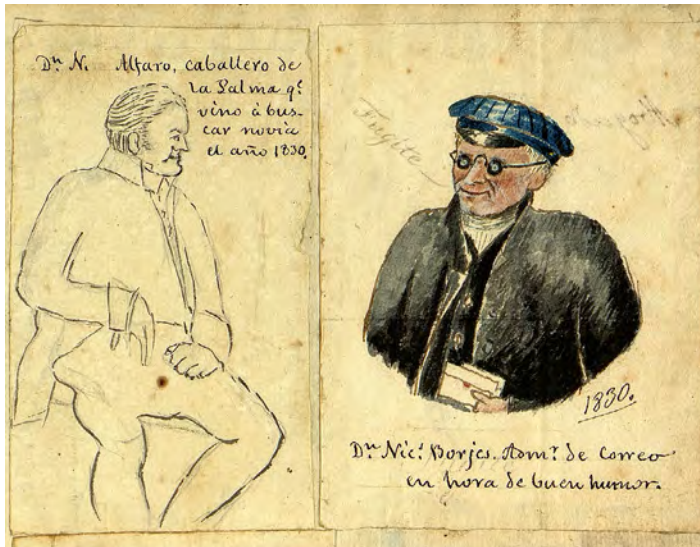 Dn N. Alfaro, caballero de
la Palma qe
vino à bus-
car novia
el año 1830.
Fugite
1830.
Dn Nic.s Borjes. Admr. de Correo
en hora de buen humor.